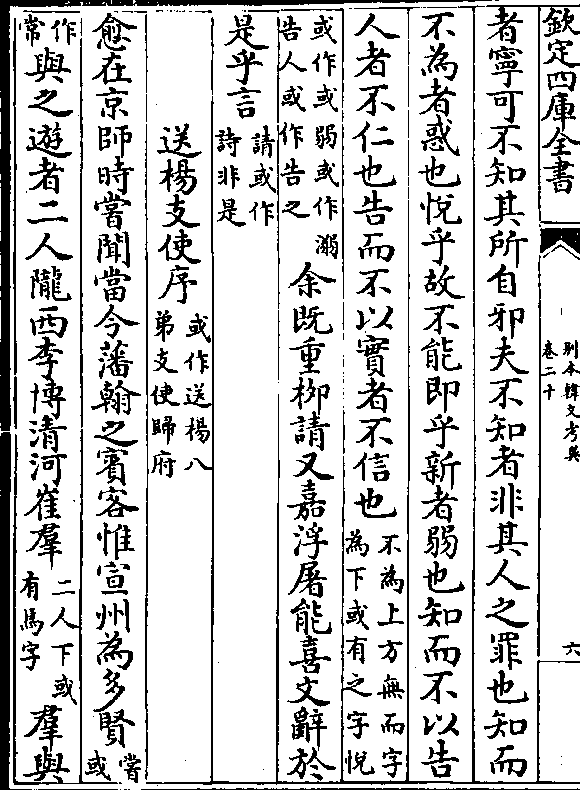 欽定四庫全書
別本韓文考異
卷二十
六
者寧可不知其所自邪夫不知者非其人之罪也知而
不為者惑也悅乎故不能即乎新者弱也知而不以告
人者不仁也告而不以實者不信也不為上方無而字
為下或有之字悅
或作或弱或作溺
告人或作告之余既重栁請又嘉浮屠能喜文辭於
是乎言請或作
詩非是
送楊支使序或作送楊八
弟支使歸府
愈在京師時嘗聞當今藩翰之賓客惟宣州為多賢嘗
或
作
常與之遊者二人隴西李博清河崔羣二人下或
有馬字羣與